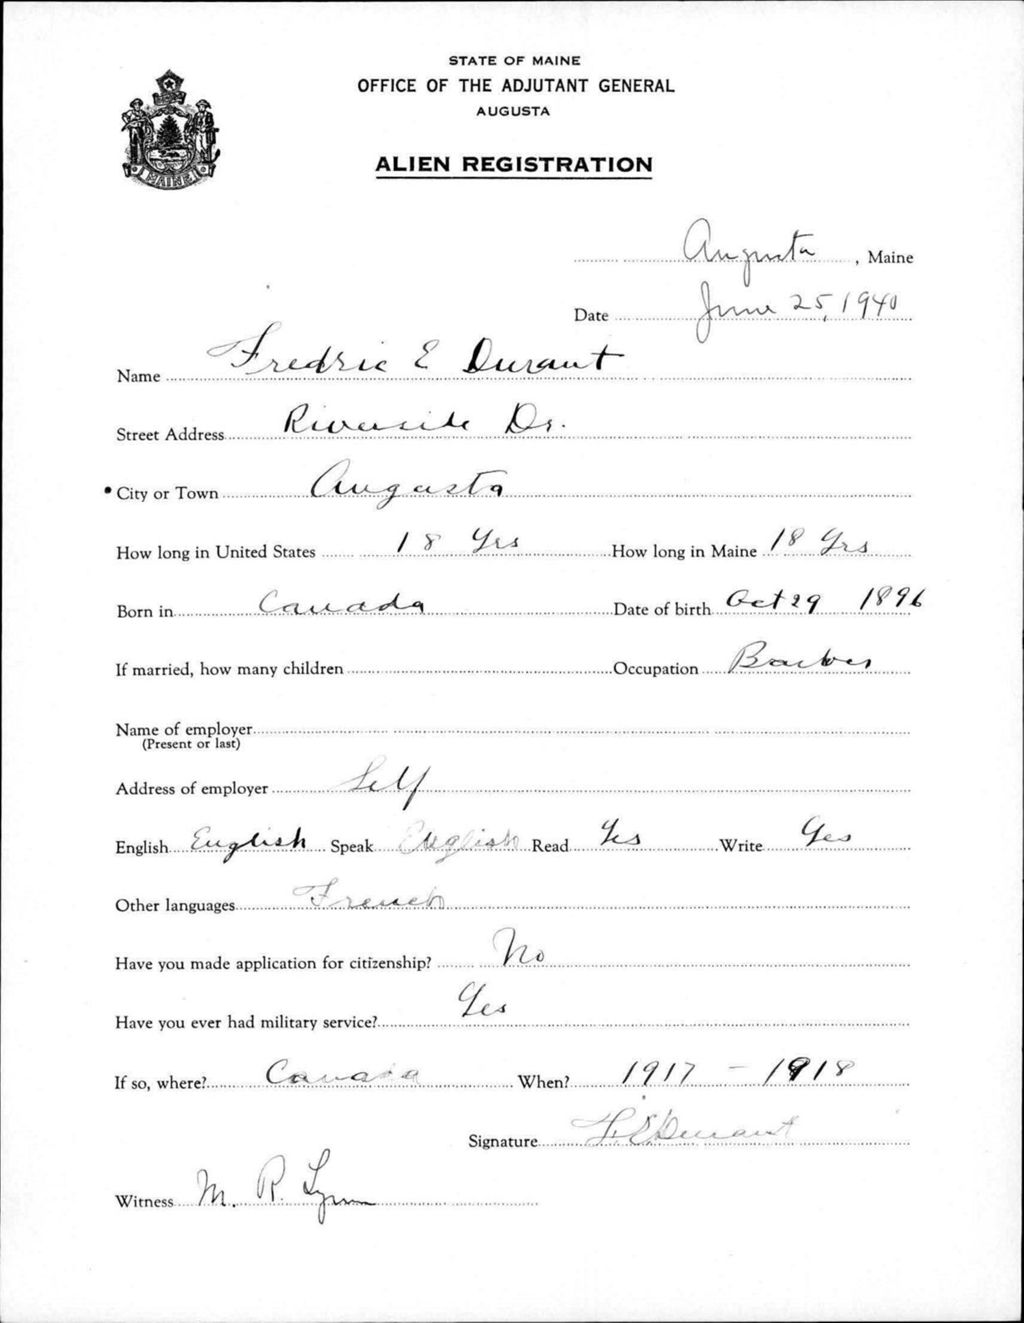 STATE OF MAINE
OFFICE OF THE ADJUTANT GENERAL
AUGUSTA
ALIEN REGISTRATION
MAINE
Augusta, Maine
Date June 25, 1940
Name Fredric E Durant
Street Address Riverside Dr.
City or Town Augusta
How long in United States 18 Yrs How long in Maine 18 Yrs
Born in Canada Date of birth Oct 29 1896
If married, how many children Occupation Barber
Name of employer
(Present or last)
Address of employer Self
English English Speak English Read Yes Write Yes
Other languages French
Have you made application for citizenship? No
Have you ever had military service? Yes
If so, where? Canada When? 1917 - 1918
Signature F. E Durant
Witness M. R. Lynn